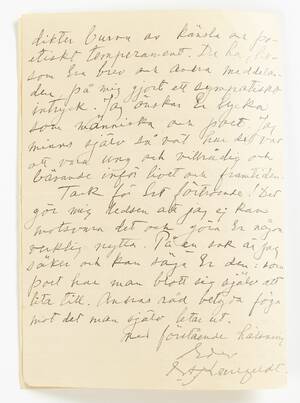 dikter burna av känsla och po-
etiskt temperament. De ha, li-
som Era brev och andra meddelan-
den på mig gjort ett sympatiskt
intryck. Jag önskar Er lycka
som människa och poet. Jag
minns själv så väl hur det var
att vara ung och villrådig och
bävande inför livet och framtiden.
Tack för Ert förtroende! Det
gör mig ledsen att jag ej kan
motsvara det och göra Er någon
verklig nytta. På en sak är jag
säker och kan säga Er den: som
poet har man blott sig själv att
lita till. Andras råd betyda föga
mot det man själv letar ut.
Med förstående hälsning
Eder